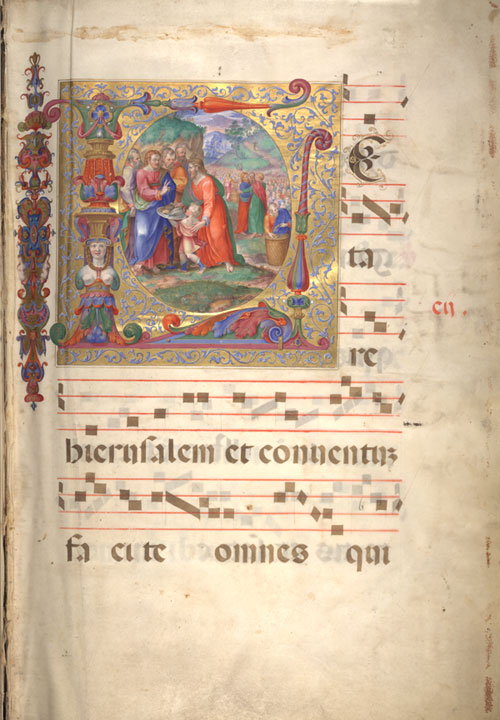 LE
ta
cii.
re
hierusalem et conuentuʒ
fa cite omnes qui